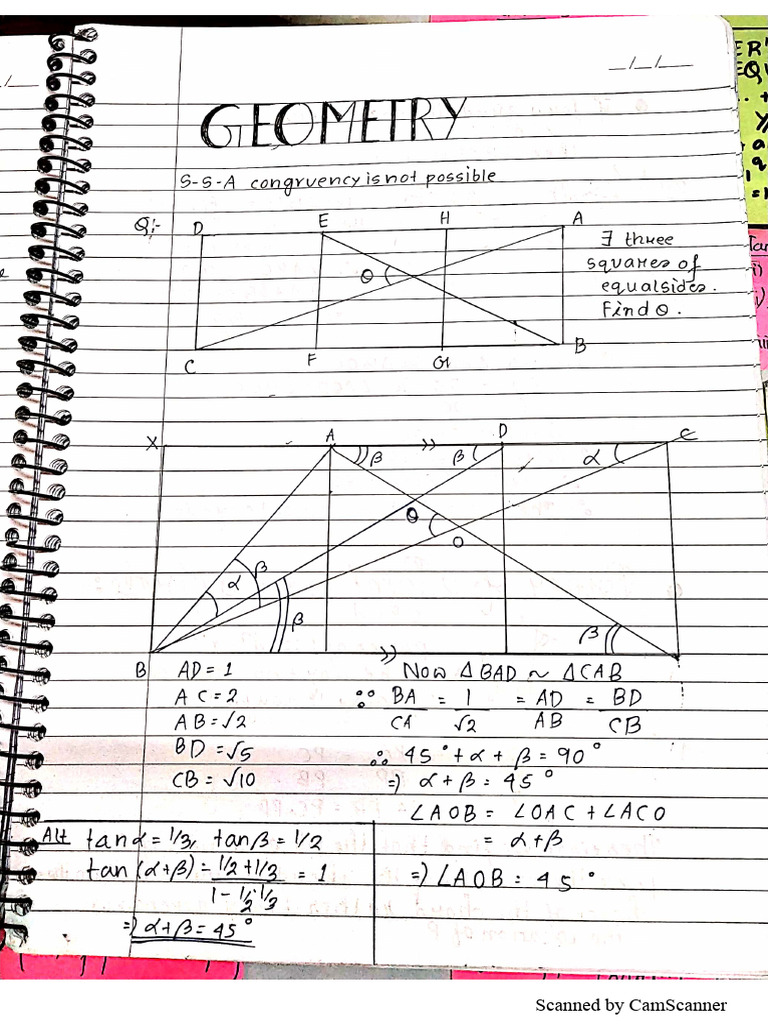 _/_/__
GEOMETRY
S-S-A congruency is not possible
Q:-
D E H A
θ
C F G B
∃ three
squares of
equal sides.
Find θ.
X A D C
β β α
θ
O
α β
β
β
B
AD = 1
AC = 2
AB = √2
BD = √5
CB = √10
Now ΔBAD ~ ΔCAB
∵ BA/CA = 1/√2 = AD/AB = BD/CB
∴ 45° + α + β = 90°
⇒ α + β = 45°
∠AOB = ∠OAC + ∠ACO
= α + β
⇒ ∠AOB = 45°
Alt tan α = 1/3, tan β = 1/2
tan (α+β) = (1/2 + 1/3)/(1 - 1/2 · 1/3) = 1
⇒ α + β = 45°
Scanned by CamScanner